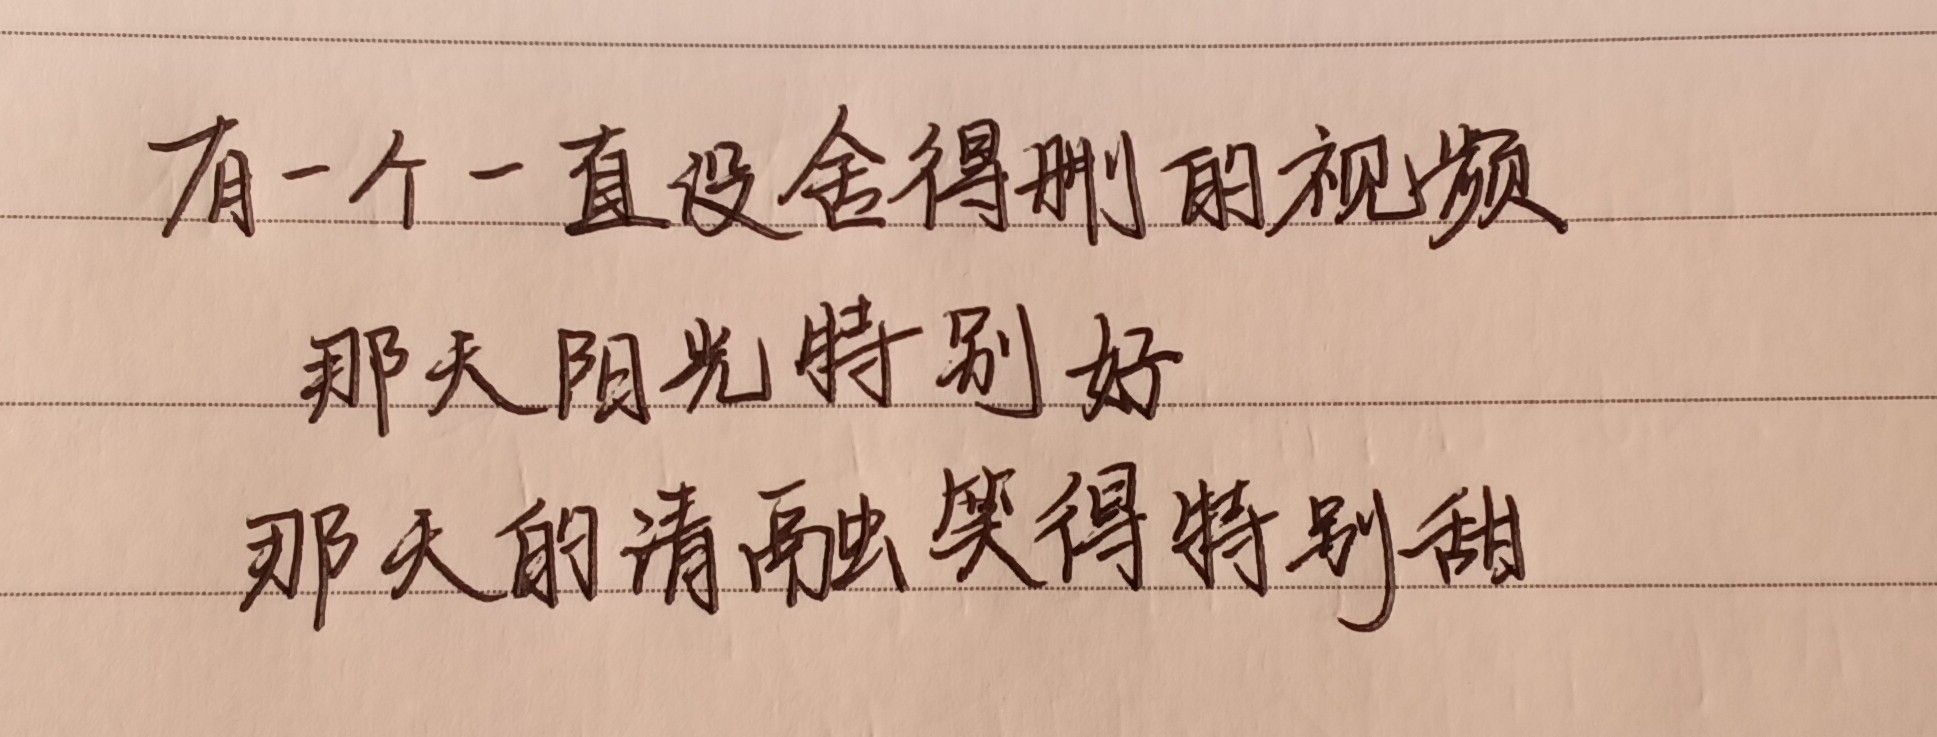 有一个一直没舍得删的视频
那天阳光特别好
那天的清融笑得特别甜